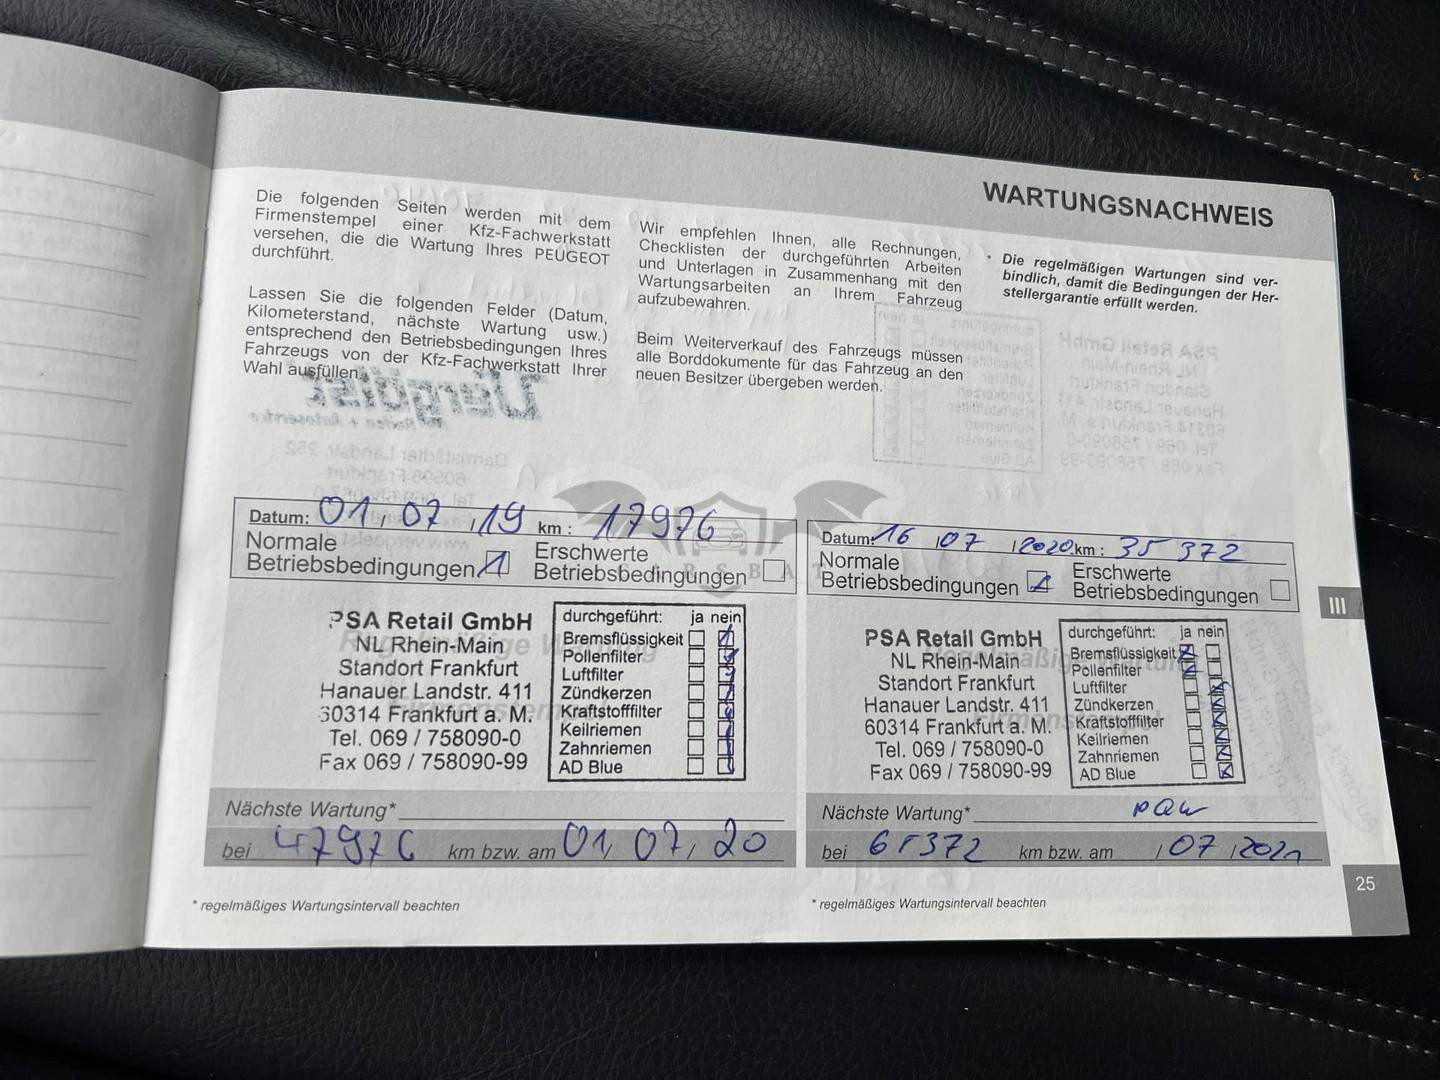 WARTUNGSNACHWEIS
Die folgenden Seiten werden mit dem
Firmenstempel einer Kfz-Fachwerkstatt
versehen, die die Wartung Ihres PEUGEOT
durchführt.
Lassen Sie die folgenden Felder (Datum,
Kilometerstand, nächste Wartung usw.)
entsprechend den Betriebsbedingungen Ihres
Fahrzeugs von der Kfz-Fachwerkstatt Ihrer
Wahl ausfüllen.
Wir empfehlen Ihnen, alle Rechnungen,
Checklisten der durchgeführten Arbeiten
und Unterlagen in Zusammenhang mit den
Wartungsarbeiten an Ihrem Fahrzeug
aufzubewahren.
Beim Weiterverkauf des Fahrzeugs müssen
alle Borddokumente für das Fahrzeug an den
neuen Besitzer übergeben werden.
• Die regelmäßigen Wartungen sind ver-
bindlich, damit die Bedingungen der Her-
stellergarantie erfüllt werden.
Datum: 01 / 07 / 19 km : 17976
Normale
Betriebsbedingungen
Erschwerte
Betriebsbedingungen
PSA Retail GmbH
NL Rhein-Main
Standort Frankfurt
Hanauer Landstr. 411
60314 Frankfurt a. M.
Tel. 069 / 758090-0
Fax 069 / 758090-99
durchgeführt: ja nein
Bremsflüssigkeit
Pollenfilter
Luftfilter
Zündkerzen
Kraftstofffilter
Keilriemen
Zahnriemen
AD Blue
Regelmäßige Wartung
Firmenstempel
Nächste Wartung*
bei 47976 km bzw. am 01, 07, 20
* regelmäßiges Wartungsintervall beachten
Datum: 16 / 07 / 2020 km : 35 372
Normale
Betriebsbedingungen
Erschwerte
Betriebsbedingungen
PSA Retail GmbH
NL Rhein-Main
Standort Frankfurt
Hanauer Landstr. 411
60314 Frankfurt a. M.
Tel. 069 / 758090-0
Fax 069 / 758090-99
durchgeführt: ja nein
Bremsflüssigkeit
Pollenfilter
Luftfilter
Zündkerzen
Kraftstofffilter
Keilriemen
Zahnriemen
AD Blue
Regelmäßige Wartung
Firmenstempel
Nächste Wartung*
bei 65372 km bzw. am / 07 / 2021
* regelmäßiges Wartungsintervall beachten
III
25
CARSBAT